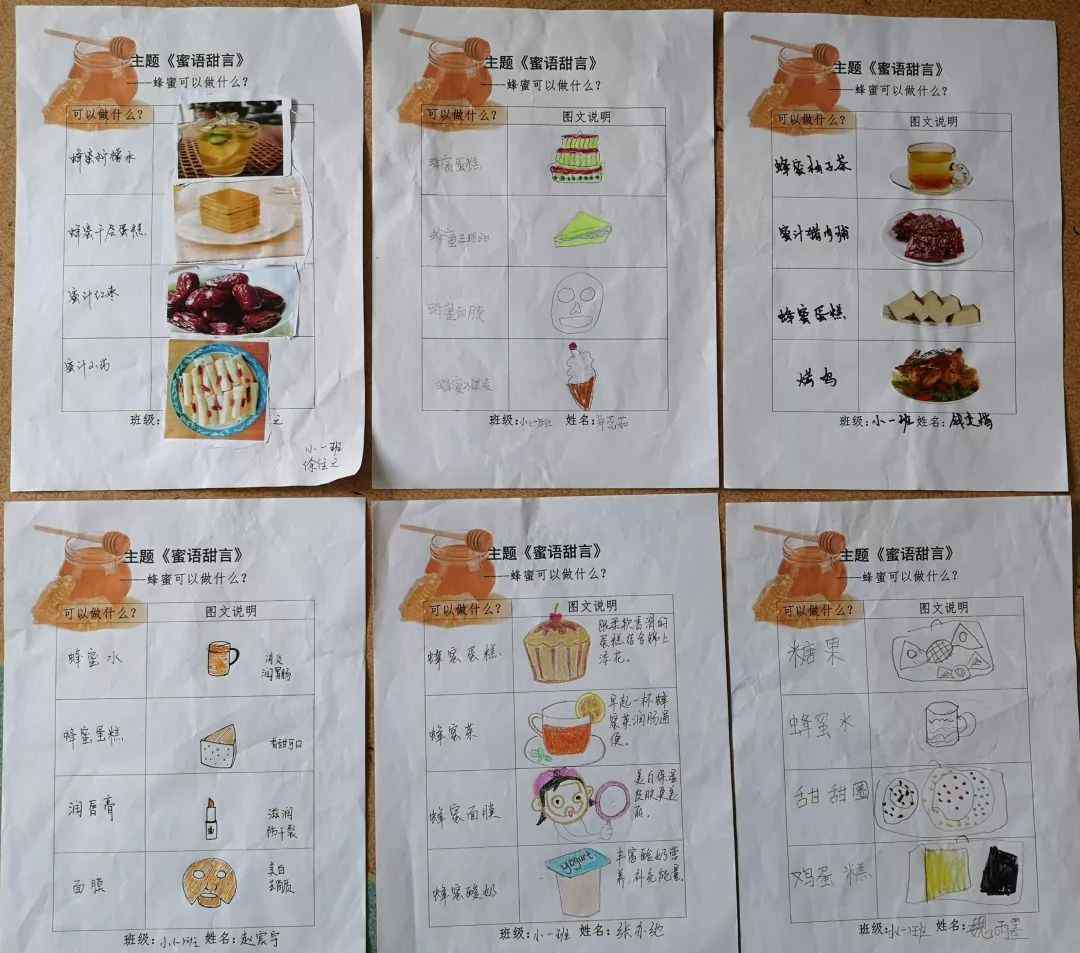 主题《蜜语甜言》
——蜂蜜可以做什么?
可以做什么?
蜂蜜柠檬水
蜂蜜千层蛋糕
蜜汁红枣
蜜汁山药
班级:
之
小一班
徐佳之
主题《蜜语甜言》
——蜂蜜可以做什么?
可以做什么? 图文说明
蜂蜜蛋糕
蜂蜜三明治
蜂蜜面膜
蜂蜜冰淇淋
班级:小一班 姓名:
主题《蜜语甜言》
——蜂蜜可以做什么?
可以做什么? 图文说明
蜂蜜柚子茶
蜜汁猪肉脯
蜂蜜蛋糕
烤鸡
班级:小一班 姓名:
主题《蜜语甜言》
——蜂蜜可以做什么?
可以做什么? 图文说明
蜂蜜水
消炎
润胃肠
蜂蜜蛋糕
香甜可口
润唇膏
滋润
防干裂
面膜
美白
班级:小一班 姓名:赵宸宇
主题《蜜语甜言》
——蜂蜜可以做什么?
可以做什么? 图文说明
蜂蜜蛋糕
跟柔软香滑的
蛋糕结合锦上
添花。
蜂蜜茶
早起一杯蜂
蜜茶润肠通
便。
蜂蜜面膜
美白保湿
皮肤更美
丽。
蜂蜜酸奶
yogurt
丰富酸奶营
养,补充能量。
班级:小一班 姓名:张亦弛
主题《蜜语甜言》
——蜂蜜可以做什么?
可以做什么? 图文说明
糖果
蜂蜜水
甜甜圈
鸡蛋糕
班级:小一班 姓名:魏雨墨